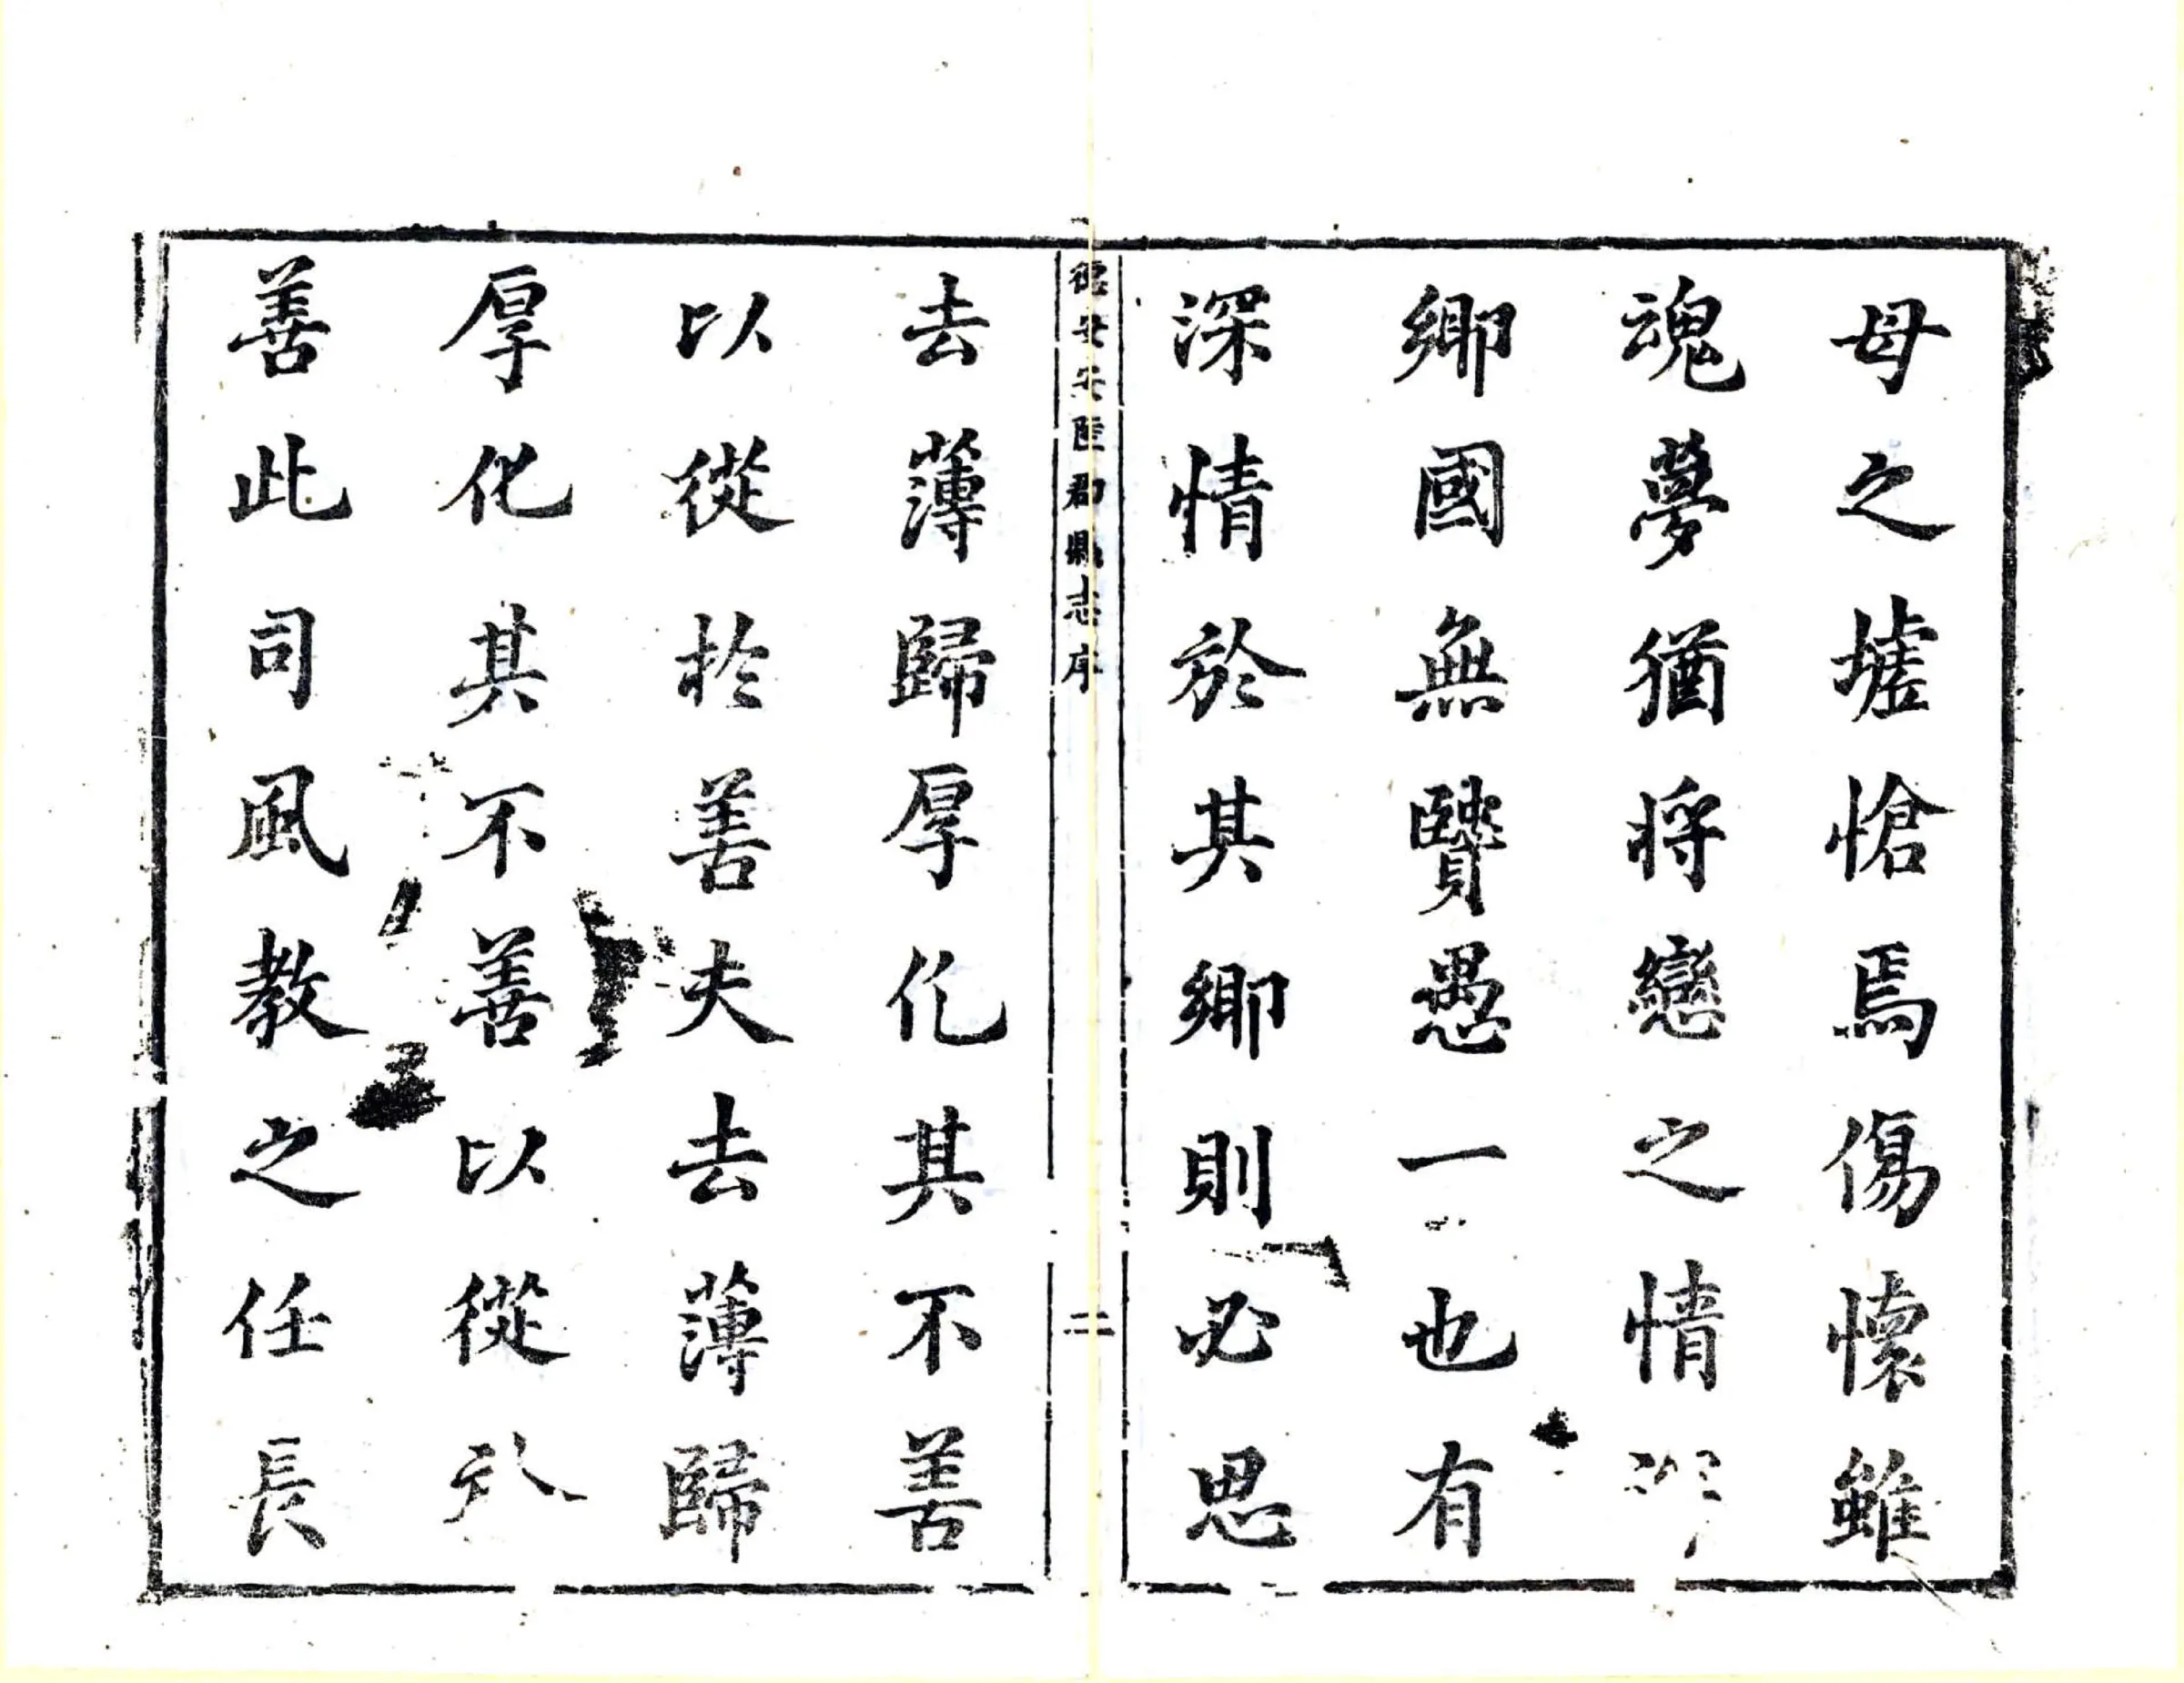 母之墟愴焉傷懷雖
魂夢猶將戀之情
鄉國無贒愚一也有
深情於其鄉則必思
德安安陸郡縣志序
二
去薄歸厚化其不善
以從於善夫去薄歸
厚化其不善以從於
善此司風教之任長